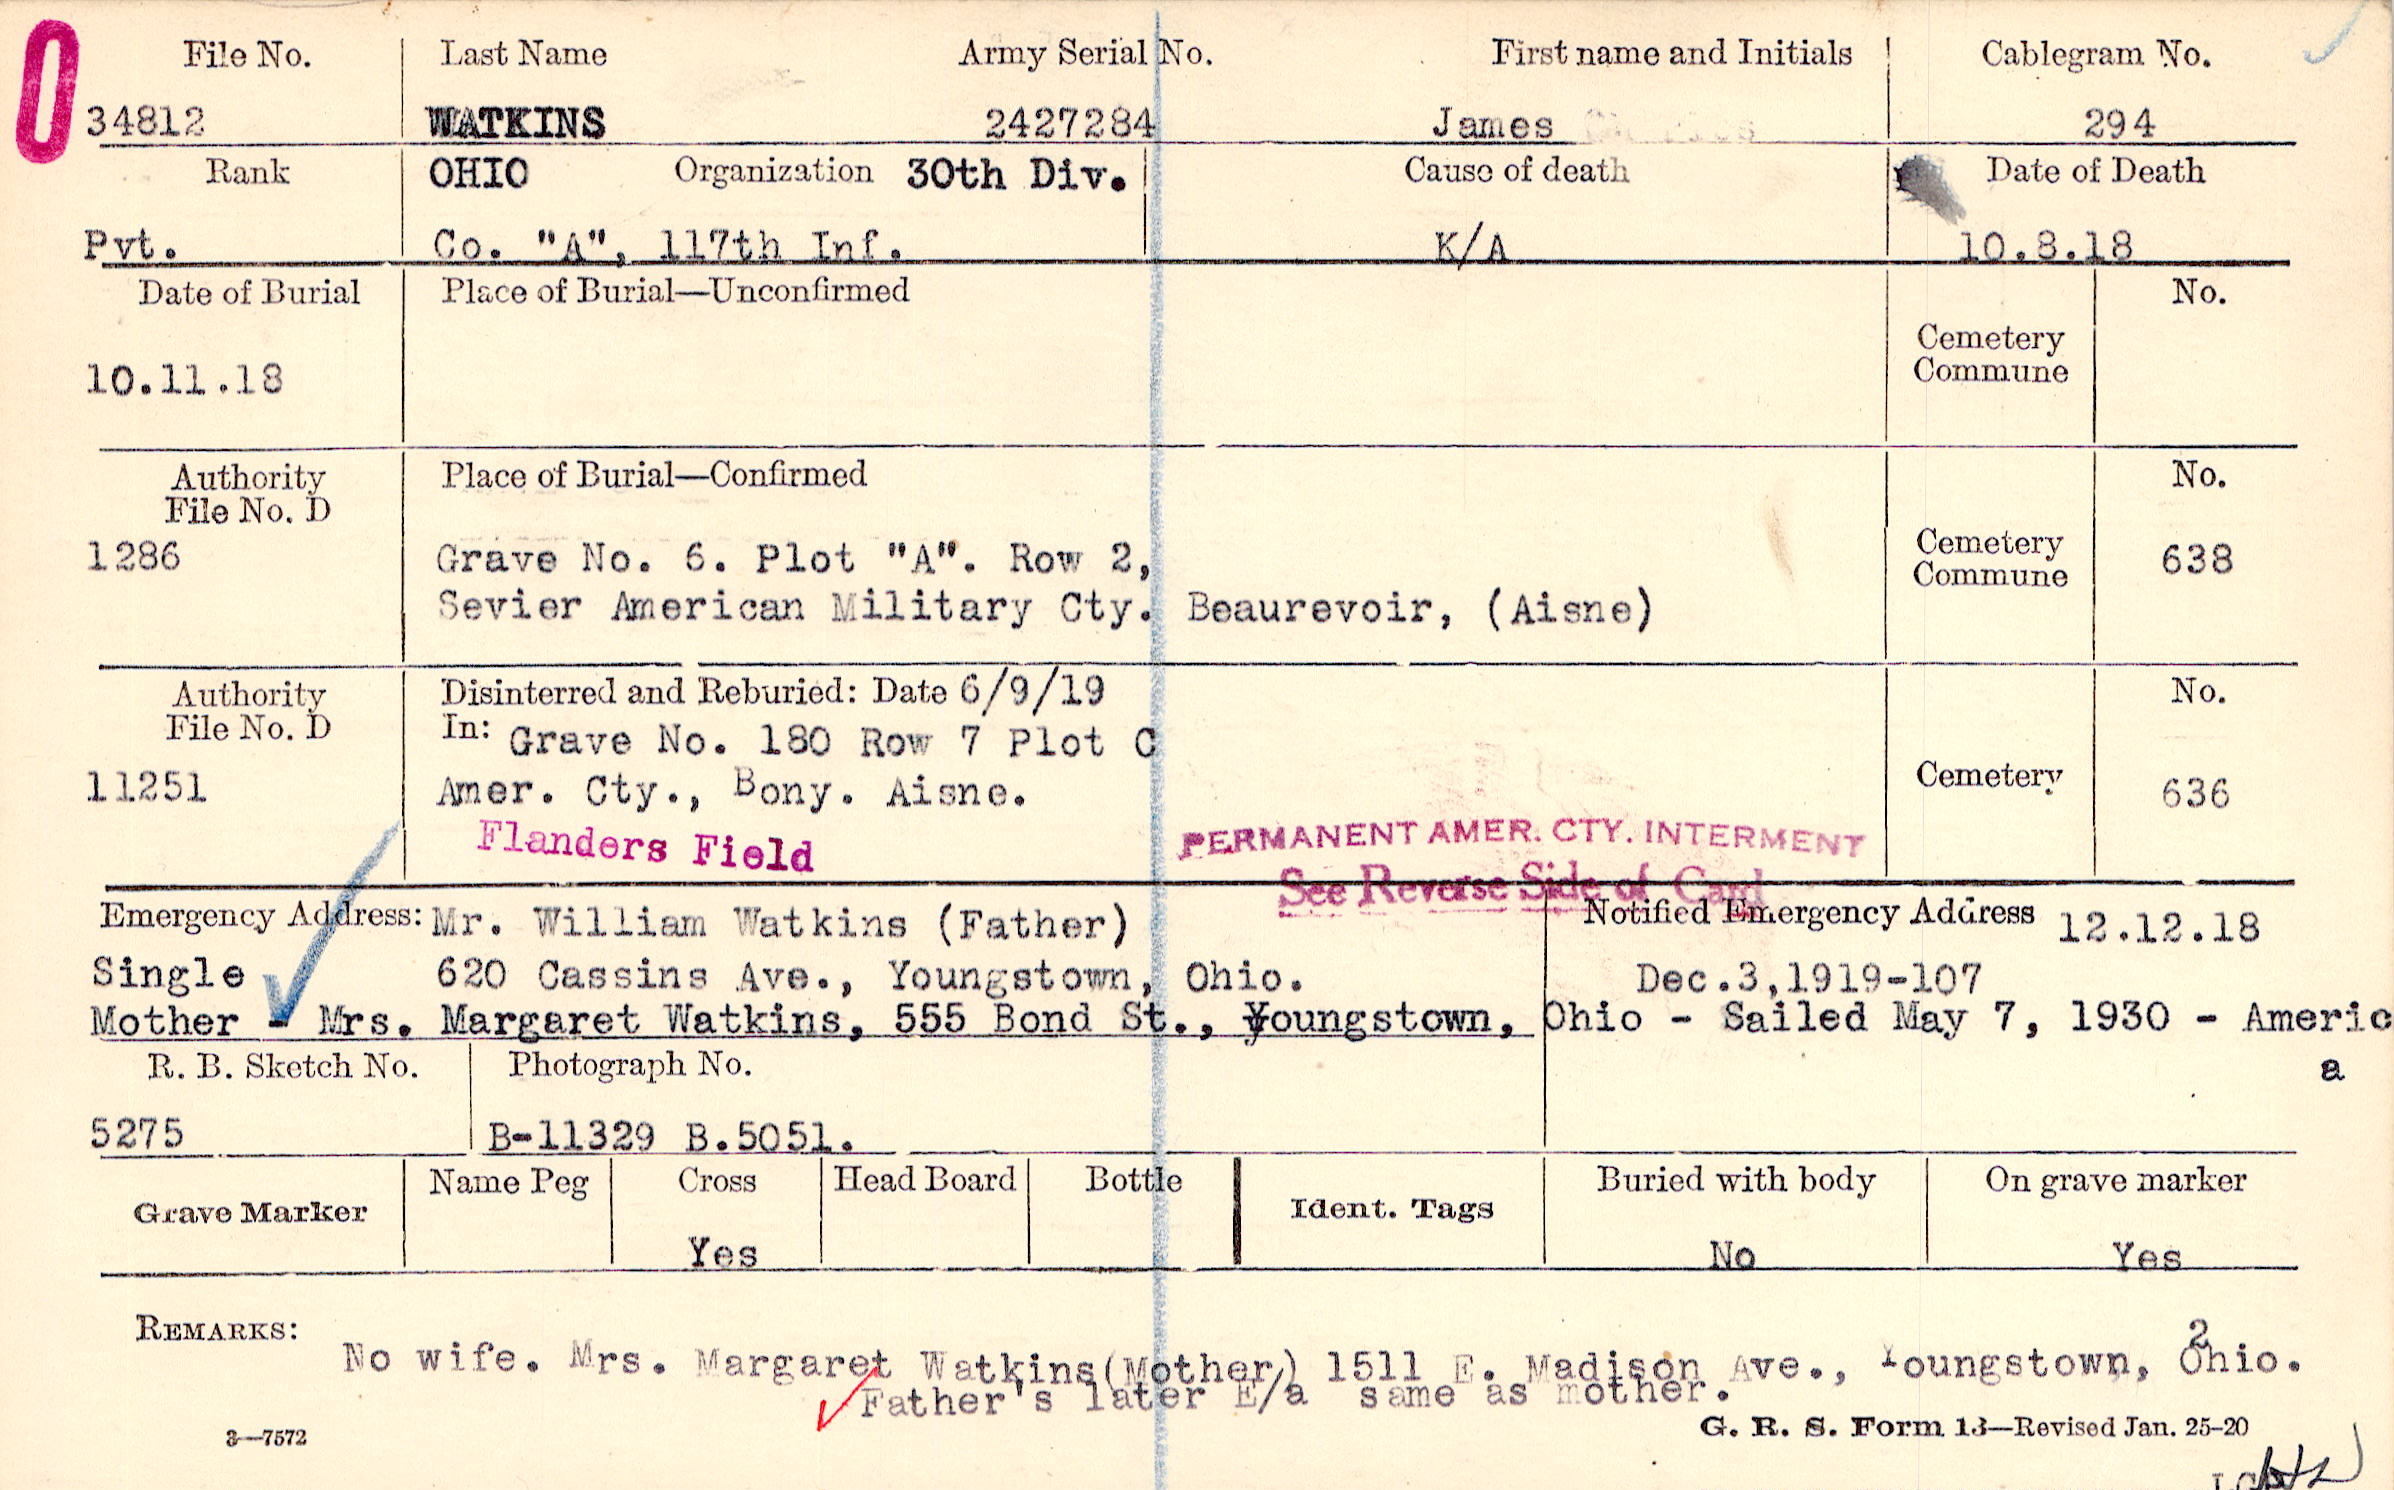 File No. Last Name Army Serial No. First name and Initials Cablegram No.
34812 WATKINS 2427284 James 294
Rank OHIO Organization 30th Div. Cause of death Date of Death
Pvt. Co. "A", 117th Inf. K/A 10.8.18
Date of Burial Place of Burial—Unconfirmed No.
Cemetery
Commune
10.11.18
Authority Place of Burial—Confirmed No.
File No. D
1286 Grave No. 6. Plot "A". Row 2, Cemetery 638
Commune
Sevier American Military Cty. Beaurevoir, (Aisne)
Authority Disinterred and Reburied: Date 6/9/19 No.
File No. D In: Grave No. 180 Row 7 Plot C
11251 Amer. Cty., Bony. Aisne. Cemetery 636
Flanders Field PERMANENT AMER. CTY. INTERMENT
See Reverse Side of Card
Emergency Address: Mr. William Watkins (Father) Notified Emergency Address 12.12.18
Single 620 Cassins Ave., Youngstown, Ohio. Dec.3,1919-107
Mother - Mrs. Margaret Watkins, 555 Bond St., Youngstown, Ohio - Sailed May 7, 1930 - Americ
a
R. B. Sketch No. Photograph No.
5275 B-11329 B.5051.
Grave Marker Name Peg Cross Head Board Bottle Ident. Tags Buried with body On grave marker
Yes No Yes
REMARKS: 2
No wife. Mrs. Margaret Watkins(Mother) 1511 E. Madison Ave., Youngstown, Ohio.
Father's later E/a same as mother.
3—7572 G. R. S. Form 13—Revised Jan. 25-20